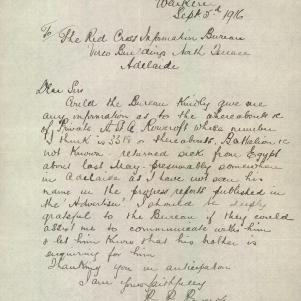 Waikerie
Sept 5th 1916
To The Red Cross Information Bureau
Verco Buildings North Terrace
Adelaide
Dear Sir
Could the Bureau Kindly give me
any information as to the whereabouts &c
of Private H. J. A. Rowcroft whose number
I think is 3318 or thereabout, Battalion &c
not Known - returned sick from Egypt
about last May - presumably somewhere
in Adelaide as I have not seen his
name in the progress reports published in
the 'Advertiser' I should be deeply
grateful to the Bureau if they could
assist me to communicate with him
& let him Know that his brother is
enquiring for him
Thanking you in anticipation
I am Yours faithfully